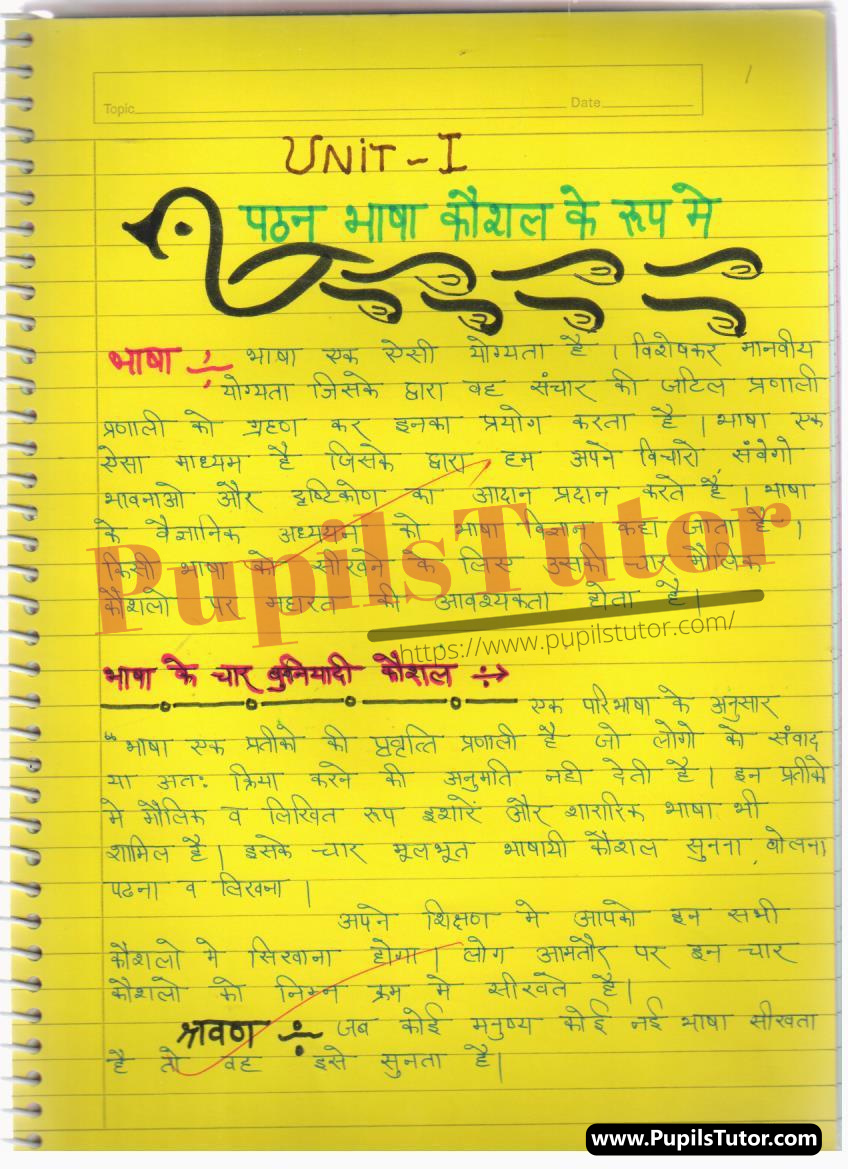 1
Topic
Date
UNIT - I
पठन भाषा कौशल के रूप मे
भाषा ÷ भाषा एक ऐसी योग्यता है । विशेषकर मानवीय
योग्यता जिसके द्वारा वह संचार की जटिल प्रणाली
प्रणाली को ग्रहण कर इनका प्रयोग करता है । भाषा एक
ऐसा माध्यम है जिसके द्वारा हम अपने विचारो संवेगो
भावनाओ और दृष्टिकोण का आदान प्रदान करते हैं । भाषा
के वैज्ञानिक अध्ययन को भाषा विज्ञान कहा जाता है ।
किसी भाषा को सीखने के लिए उसकी चार मौलिक
कौशलो पर महारत की आवश्यकता होता है ।
PupilsTutor
https://www.pupilstutor.com/
भाषा के चार बुनियादी कौशल ÷→
एक परिभाषा के अनुसार
“ भाषा एक प्रतीको की प्रणाली है जो लोगो को संवाद
या अतः क्रिया करने की अनुमति नही देती है । इन प्रतीको
मे मौलिक व लिखित रूप इशारें और शारारिक भाषा भी
शामिल है । इसके चार मूलभूत भाषायी कौशल सुनना, बोलना,
पढना व लिखना ।
अपने शिक्षण मे आपको इन सभी
कौशलो मे सिखाना होगा । लोग आमतौर पर इन चार
कौशलो को निम्न क्रम मे सीखते है ।
श्रवण ÷ जब कोई मनुष्य कोई नई भाषा सीखता
है तो वह इसे सुनता है ।
www.PupilsTutor.com